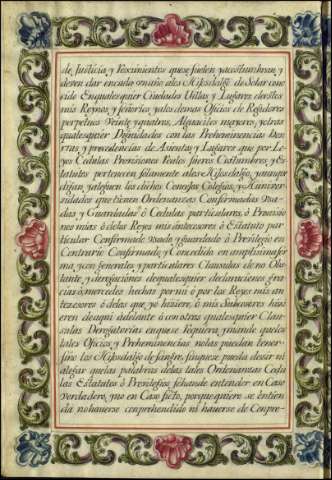 de Justicia y Vecimientos que se suelen y acostumbran, y
deven dar en cada un año, a los Hijosdalgo de Solar cono
cido En qualesquier Ciudades Villas y Lugares destos
mis Reynos, y Señorios, y a los demas Oficios de Regidores
perpetuos Veinte y quatros, Alguaciles mayores, y otras
qualesquier Dignidades con las Preheminencias Hon
rras, y precedencias de Asientos y Lugares que por Le
yes Cedulas Provisiones Reales fueros Costumbres, y Es
tatutos pertenecen solamente a los Hijosdalgo, y aunque
digan, y aleguen los dichos Concejos Colegios, y Univer
sidades que tienen Ordenanzas Confirmadas Usa
das y Guardadas ó Cedulas particulares, ó Provisio
nes mias ó de los Reyes mis antecesores ó Estatuto par
ticular Confirmado Usado y guardado ó Previlegio en
Contrario Confirmado, y Concedido en amplisima for
ma, y con generales y particulares Clausulas de no Obs
tante, y derogaciones de qualesquier declaraciones gra
cias ó mercedes hechas por mi ó por los Reyes mis an
tezesores ó de los que yo hiziere, ó mis Subcesores hizi
eren de aqui adelante ó con otras qualesquier Clau
sulas Derogatorias en que se requiera, y mande que los
tales Oficios, y Preheminencias no las puedan tener
sino los Hijosdalgo de sangre, sin que se pueda dezir ni
alegar que las palabras de las tales Ordenanzas Cedu
las Estatutos ó Previlejios se han de entender en Caso
verdadero, y no en Caso ficto, porque quiero se entien
da no haverse comprehendido ni haverse de Compre-